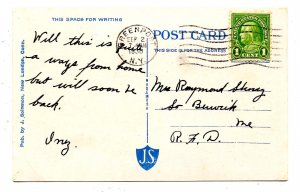 THIS SPACE FOR WRITING
Will this is quite
a ways from home
but will soon be
back.
Iny.
Pub. by J. Solomon, New London, Conn.
GREENPORT
SEP 2
N.Y.
POST CARD
THIS SIDE IS FOR THE ADDRESS
1 CENT 1
Mrs Raymond
So Berwick
Me
R.F.D.
J.S.